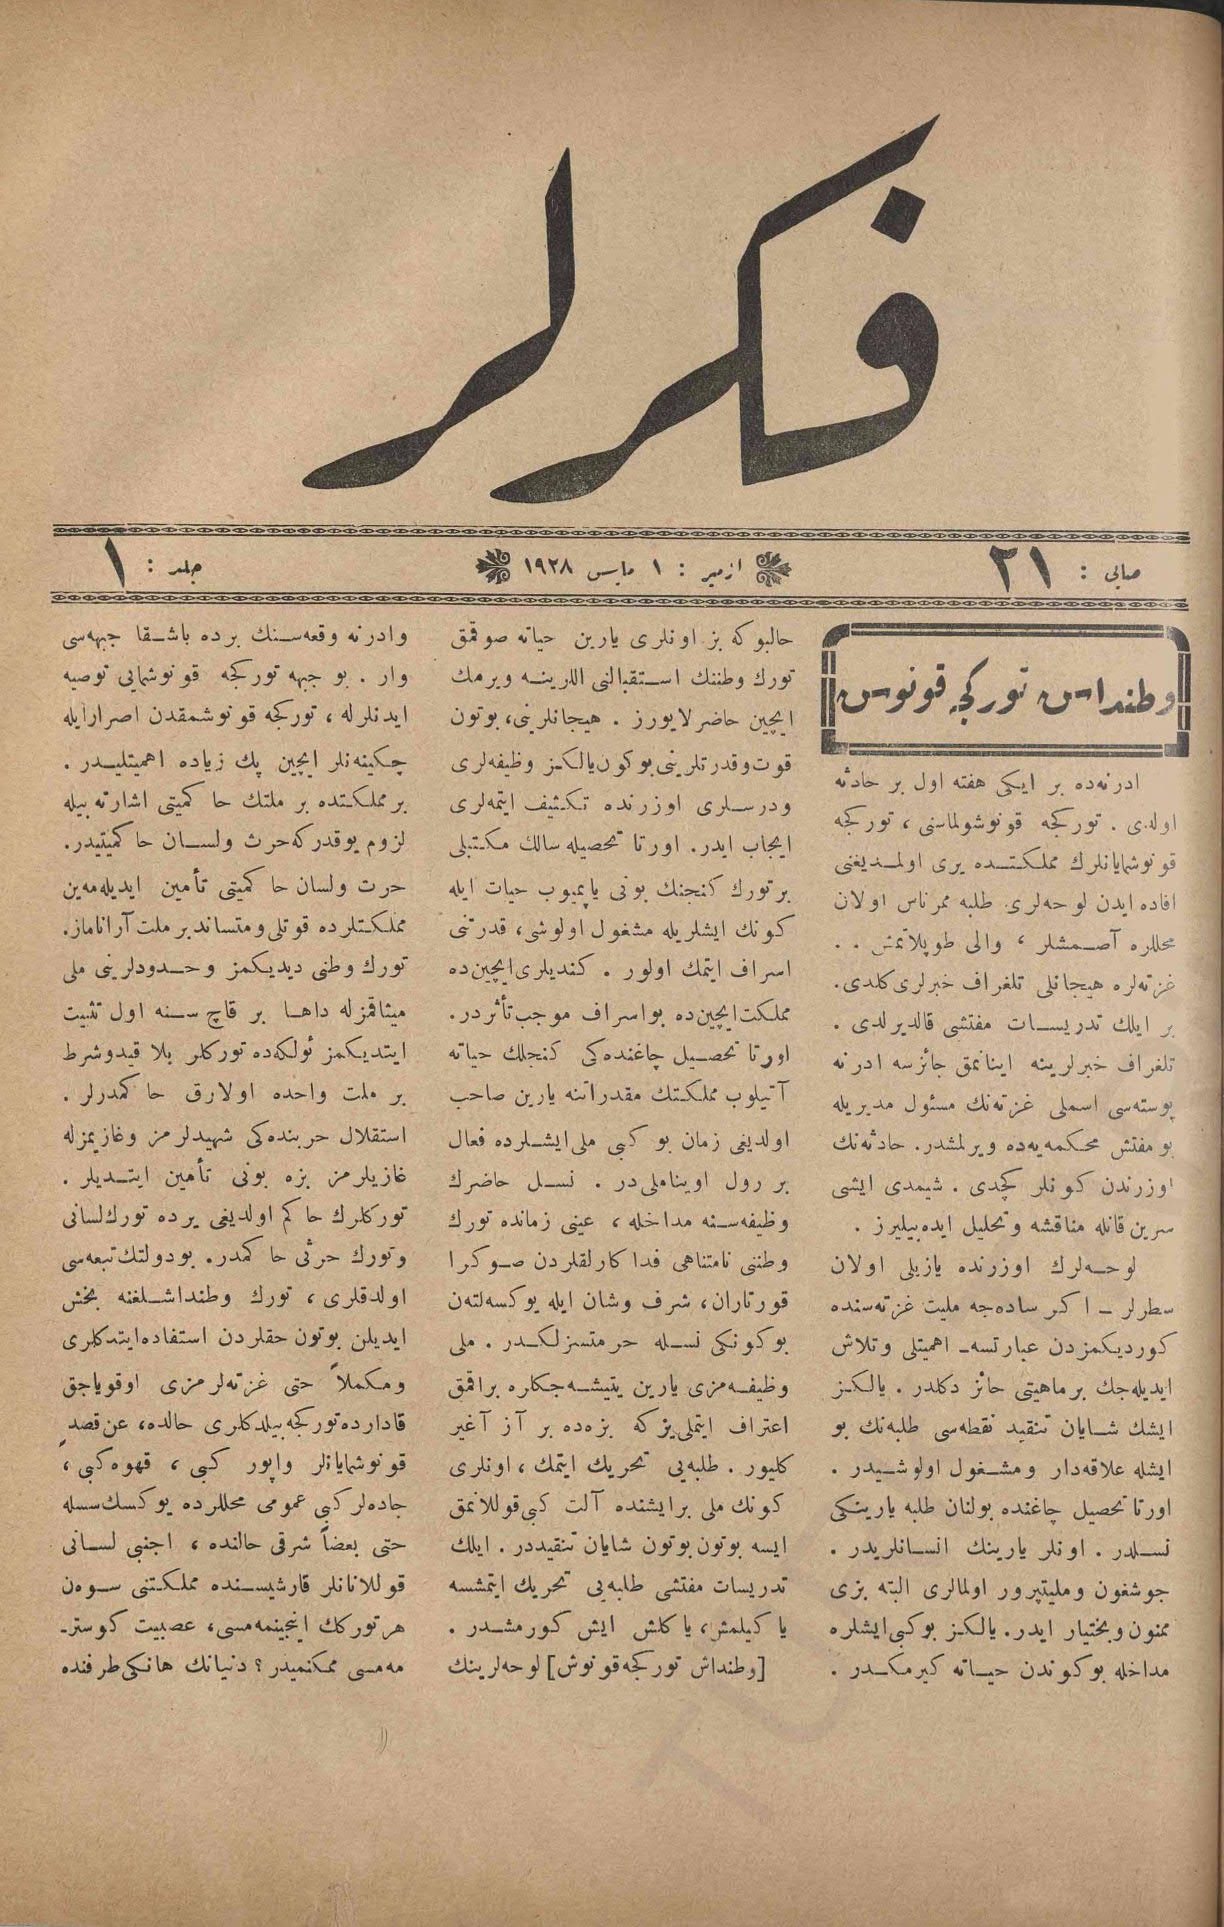 فكرلر
صایی : ٢١
ازمیر : ١ مایس ١٩٢٨
جلد : ١
وطنداش توركجه قونوش
ادرنه‌ده بر ایكی هفته اول بر حادثه
اولدی . توركجه قونوشولماسنی ، توركجه
قونوشمایانلرك مملكتـده یری اولمـدیغنی
افاده ایدن لوحه‌لری طلبه ممرناس اولان
محللره آصـمشلر ، والی طوپلاتمش . .
غزته‌لره هیجانلی تلغراف خبرلری كلدی.
بر ایلك تدریسـات مفتشی قالدیرلدی .
تلغراف خبرلرینه اینانمق جائزسه ادرنه
پوسته‌سی اسملی غزته‌نك مسئول مدیریله
بو مفتش محكمه‌یه‌ده ویرلمشدر. حادثه‌نك
اوزرندن كونلر كچدی . شیمدی ایشی
سرین قانله مناقشه و تحلیل ایده‌بیلیرز .
لوحـه‌لرك اوزرنده یازیلی اولان
سطرلر ـ اكر ساده‌جه ملیت غزته‌سنده
كوردیكمزدن عبارتسه‌ـ اهمیتلی و تلاش
ایدیله‌جك بر ماهیتی حائز دكلدر . یالكـز
ایشك شـایان تنقید نقطه‌سی طلبه‌نك بو
ایشله علاقه‌دار ومشـغول اولوشـیدر .
اورتا تحصیل چاغنده بولنان طلبه یارینـكی
نسـلدر . اونلر یارینك انسـانلریدر .
جوشغون و ملیتپرور اولمالری البته بزی
ممنون و بختیار ایدر. یالكـز بوكبی ایشلره
مداخله بوكوندن حیـاته كیرمكـدر .
حالبوكه بز اونلری یارین حیاته صوقمق
تورك وطننك اسـتقبالنی اللرینـه ویرمك
ایچین حاضرلایورز . هیجانلرنی، بوتون
قوت و قدرتلرینی بوكون یالكـز وظیفه‌لری
ودرسـلری اوزرنده تكـثیف ایتمه‌لری
ایجاب ایدر. اورتا تحصیله سالك مكتبلی
بر تورك كنجنك بونی یاپمیوب حیات ایله
كونك ایشلریله مشغول اولوشی، قدرتنی
اسراف ایتمك اولور . كندیلری ایچین‌ده
مملكت ایچین‌ده بو اسراف موجب تأثردر.
اورتا تحصـیل چاغنده‌كی كنجلك حیاته
آتیلوب مملكتك مقدراتنه یارین صاحب
اولدیغی زمان بو كبی ملی ایشـلرده فعال
بر رول اوینامالی در . نسـل حاضرك
وظیفه‌سـنه مداخله ، عینی زمانده تورك
وطننی نامتناهی فدا كارلقلردن صـوكرا
قورتاران، شرف وشان ایله یوكسه‌لته‌ن
بوكونكی نسـله حرمتسزلكـدر . ملی
وظیفـه‌مزی یارین یتیشـه‌جكلره براقمق
اعتراف ایتملی‌یز كه بزه‌ده بر آز آغیر
كلیور . طلبه‌یی تحریك ایتمك ، اونلری
كونك ملی برایشنده آلت كبی قوللانمق
ایسه بوتون بوتون شایان تنقیددر . ایلك
تدریسات مفتشی طلبه‌یی تحریك ایتمشسه
یا كیلمش، یا كلش ایش كورمشـدر .
[وطنداش توركجه قونوش] لوحه‌لرینك
وادرنه وقعه‌سـنك برده باشـقا جبهه‌سی
وار . بو جبهه توركجه قونوشمایی توصیه
ایدنلرله ، توركجه قونوشمقدن اصرارایله
چكینه‌نلر ایچین پك زیاده اهمیتلیـدر .
بر مملكتده بر ملتك حا كمیتی اشارته بیله
لزوم یوقدركه حرث ولسـان حا كمیتیدر.
حرث ولسان حا كمیتی تأمین ایدیله‌مه‌ین
مملكتلرده قوتلی و متساند بر ملت آرانماز.
تورك وطنی دیدیكمز وحـدودلرینی ملی
میثاقمزله داهـا بر قاچ سـنه اول تثبیت
ایتدیكمز ئولكه‌ده توركلر بلا قیدوشرط
بر ملت واحده اولارق حا كمدرلر .
استقلال حربنده‌كی شهیدلرمز و غازیمزله
غازیلرمز بزه بونی تأمین ایتـدیلر .
توركلرك حا كم اولدیغی یرده تورك لسانی
وتورك حرثی حا كمدر. بودولتك تبعه‌سی
اولدقلری ، تورك وطنداشـلغنه بخش
ایدیلن بوتون حقلردن استفاده ایتدكلری
ومكملاً حتی غزته‌لرمزی اوقویاجق
قادارده توركجه بیلدكلری حالده، عن قصدٍ
قونوشمایانلر واپور كبی ، قهوه كبی ،
جاده‌لر كبی عمومی محللرده یوكسك سسله
حتی بعضاً شرقی حالنده ، اجنبی لسـانی
قوللانانلر قارشیسـنده مملكتنی سـوه‌ن
هر توركك اینجینمه‌مسی، عصبیت كوسترـ
مه‌مسی ممكنمیدر؟ دنیانك هانكی طرفنده